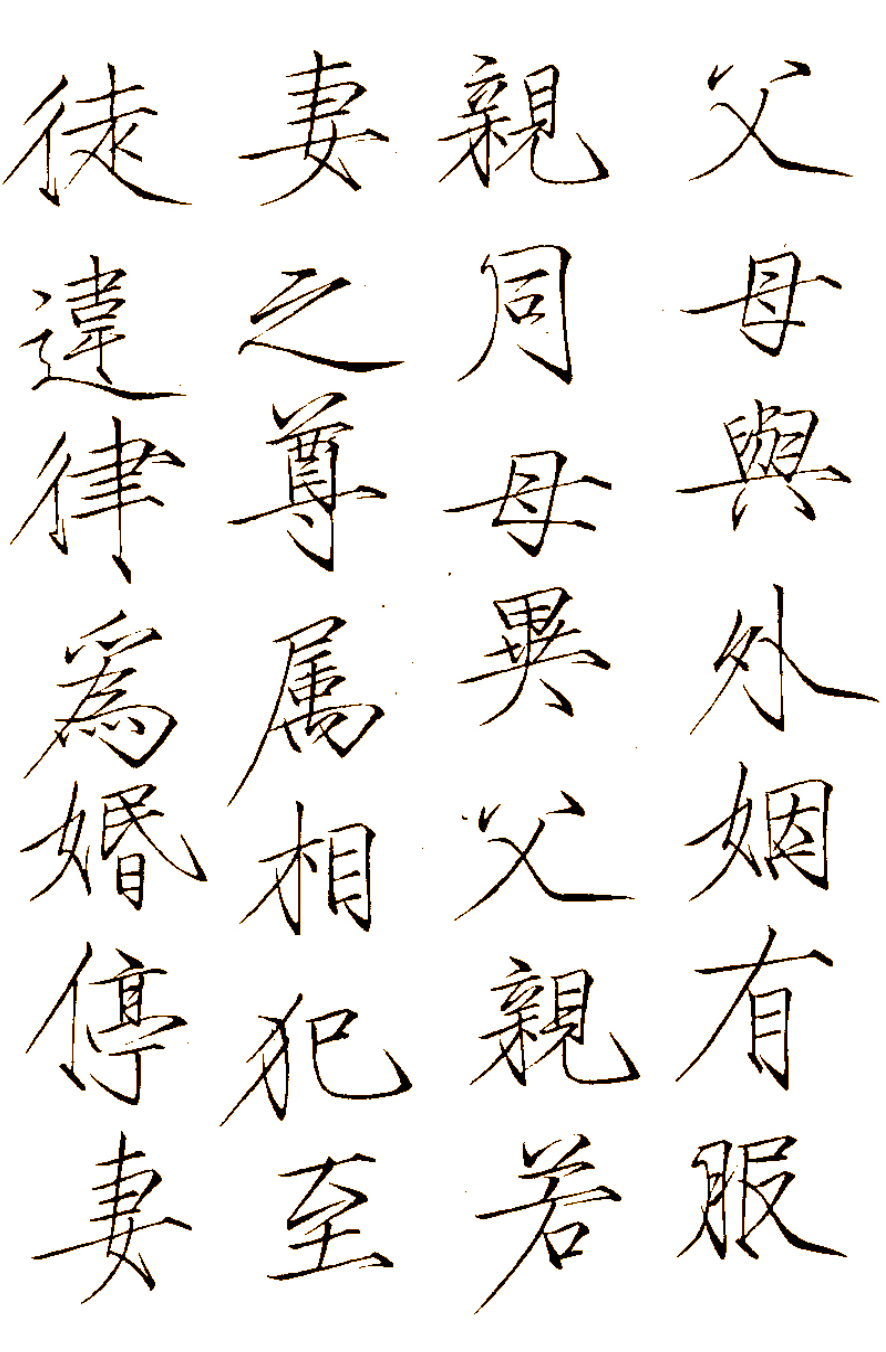 父母與外姻有服
親同母異父親若
妻之尊属相犯至
徒違律為婚停妻